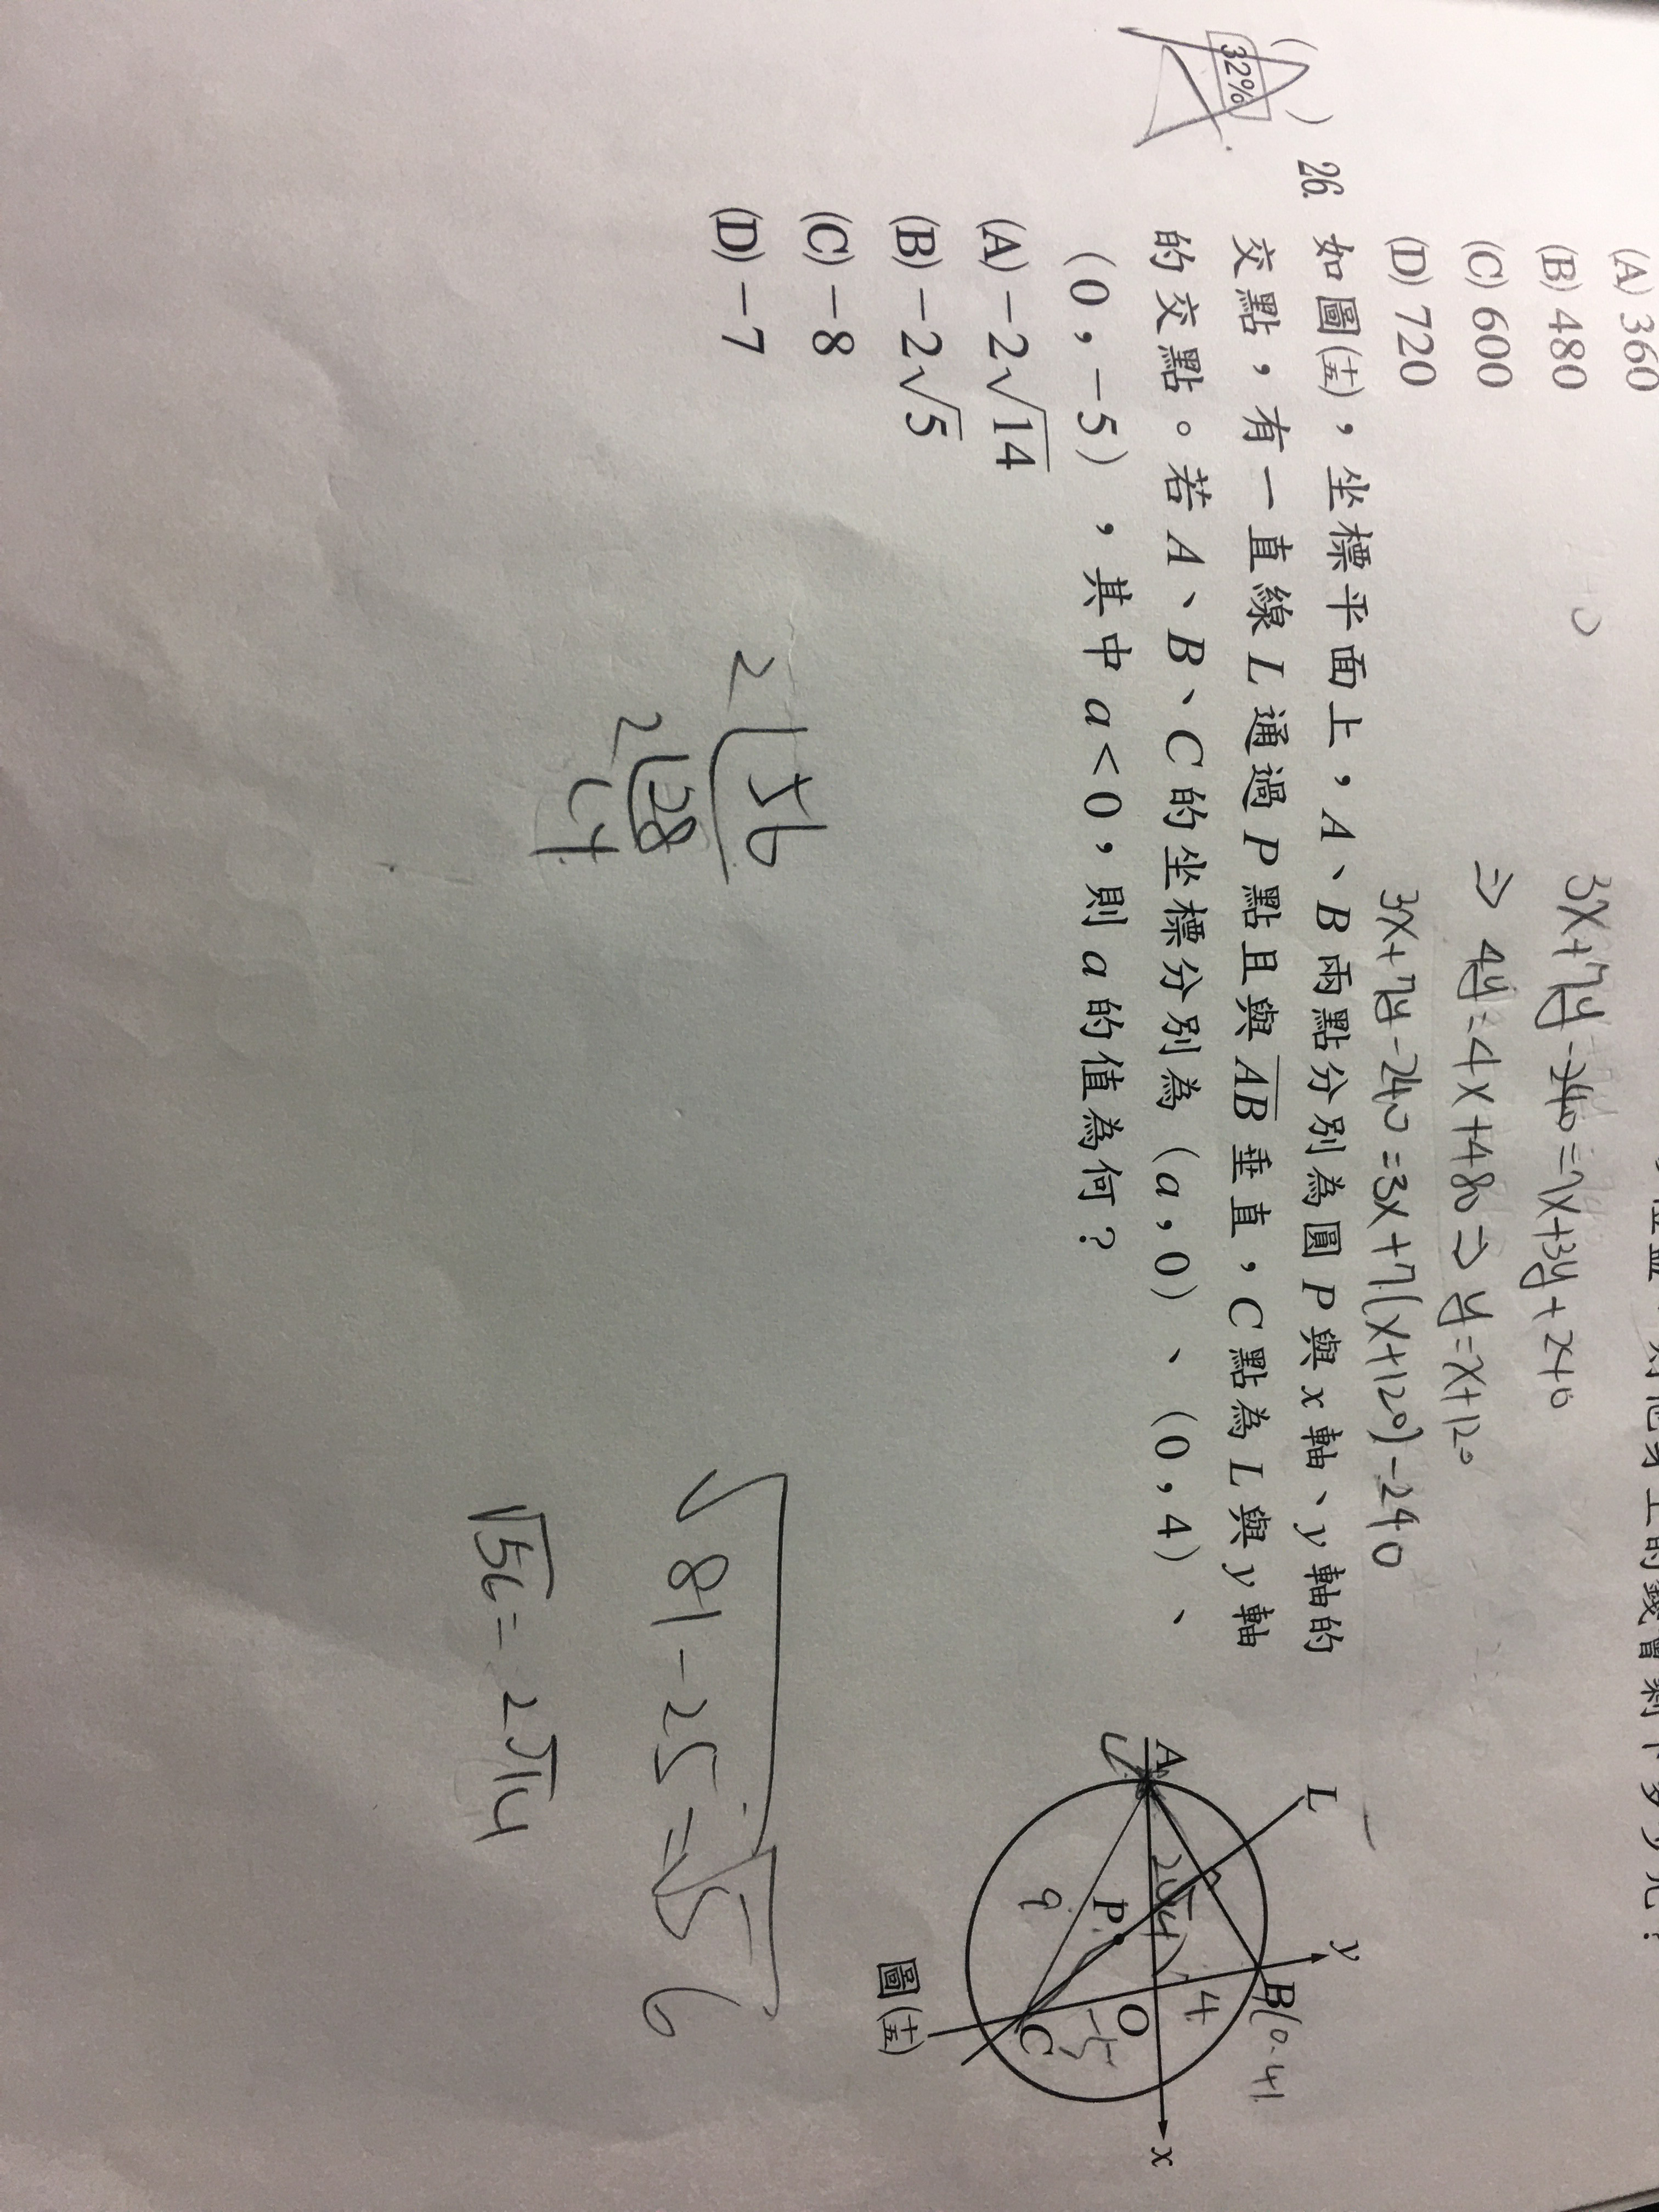 (A) 360
(B) 480
(C) 600
(D) 720
3x+7y-240=7x+3y+240
⇒ 4y=4x+480⇒ y=x+120
3x+7y-240=3x+7(x+120)-240
( ) 26. 如圖(十五)，坐標平面上，A、B兩點分別為圓P與x軸、y軸的
32%
交點，有一直線L通過P點且與AB垂直，C點為L與y軸
的交點。若A、B、C的坐標分別為(a，0)、(0，4)、
(0，-5)，其中a<0，則a的值為何？
(A) -2√14
(B) -2√5
(C) -8
(D) -7
L
y
A
B(0.4)
2√14
4
P
O
x
9
-5
C
圖(十五)
2 56
2 28
14
√81-25=√56
√56=2√14